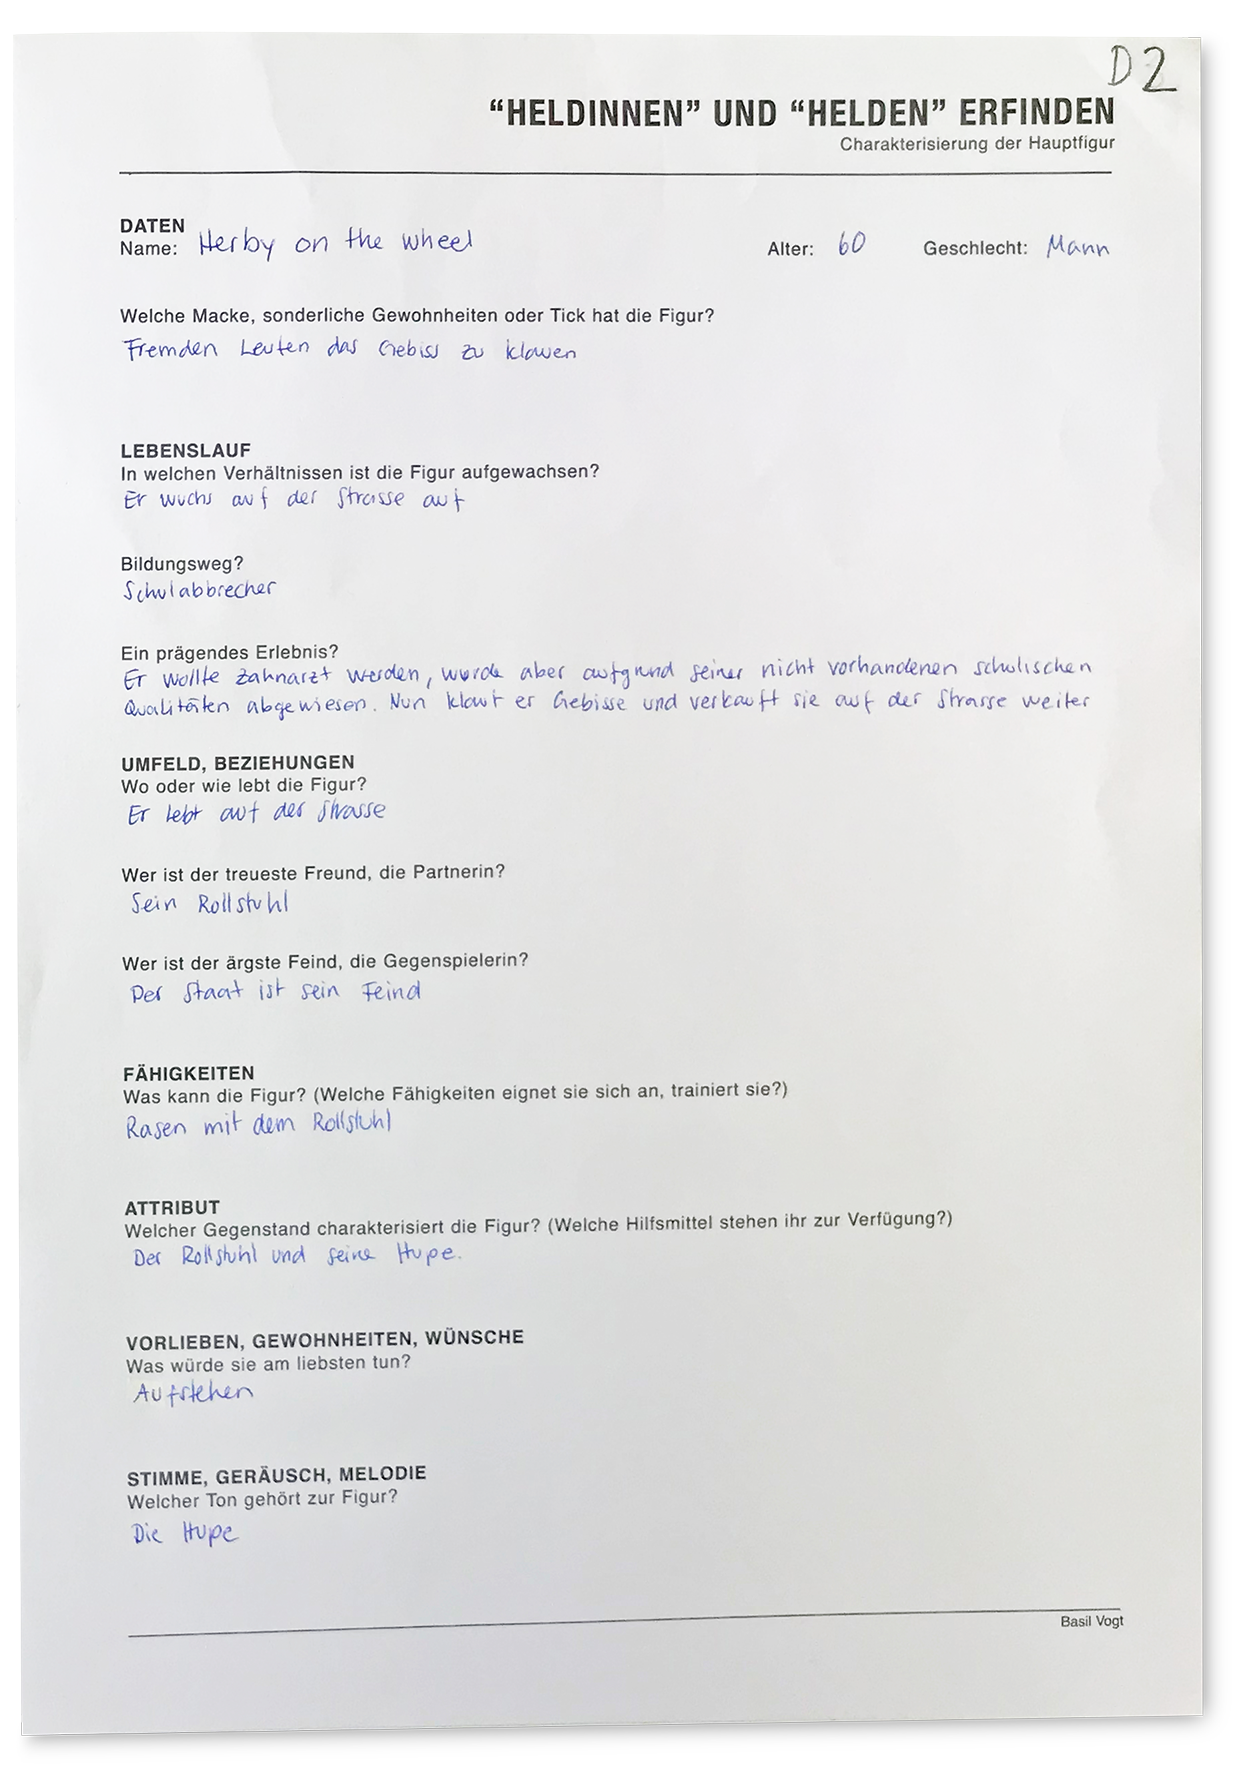 D2
“HELDINNEN” UND “HELDEN” ERFINDEN
Charakterisierung der Hauptfigur
DATEN
Name: Herby on the wheel Alter: 60 Geschlecht: Mann
Welche Macke, sonderliche Gewohnheiten oder Tick hat die Figur?
Fremden Leuten das Gebiss zu klauen
LEBENSLAUF
In welchen Verhältnissen ist die Figur aufgewachsen?
Er wuchs auf der Strasse auf
Bildungsweg?
Schulabbrecher
Ein prägendes Erlebnis?
Er wollte Zahnarzt werden, wurde aber aufgrund seiner nicht vorhandenen schulischen
Qualitäten abgewiesen. Nun klaut er Gebisse und verkauft sie auf der Strasse weiter
UMFELD, BEZIEHUNGEN
Wo oder wie lebt die Figur?
Er lebt auf der Strasse
Wer ist der treueste Freund, die Partnerin?
Sein Rollstuhl
Wer ist der ärgste Feind, die Gegenspielerin?
Der Staat ist sein Feind
FÄHIGKEITEN
Was kann die Figur? (Welche Fähigkeiten eignet sie sich an, trainiert sie?)
Rasen mit dem Rollstuhl
ATTRIBUT
Welcher Gegenstand charakterisiert die Figur? (Welche Hilfsmittel stehen ihr zur Verfügung?)
Der Rollstuhl und seine Hupe.
VORLIEBEN, GEWOHNHEITEN, WÜNSCHE
Was würde sie am liebsten tun?
Aufstehen
STIMME, GERÄUSCH, MELODIE
Welcher Ton gehört zur Figur?
Die Hupe
Basil Vogt